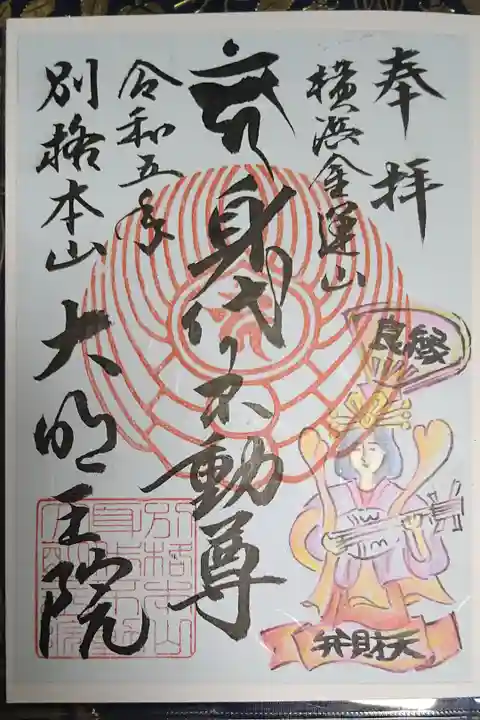 奉拝
横浜金運山
身代り不動尊
令和五年
別格本山
大明王院
良縁
弁財天